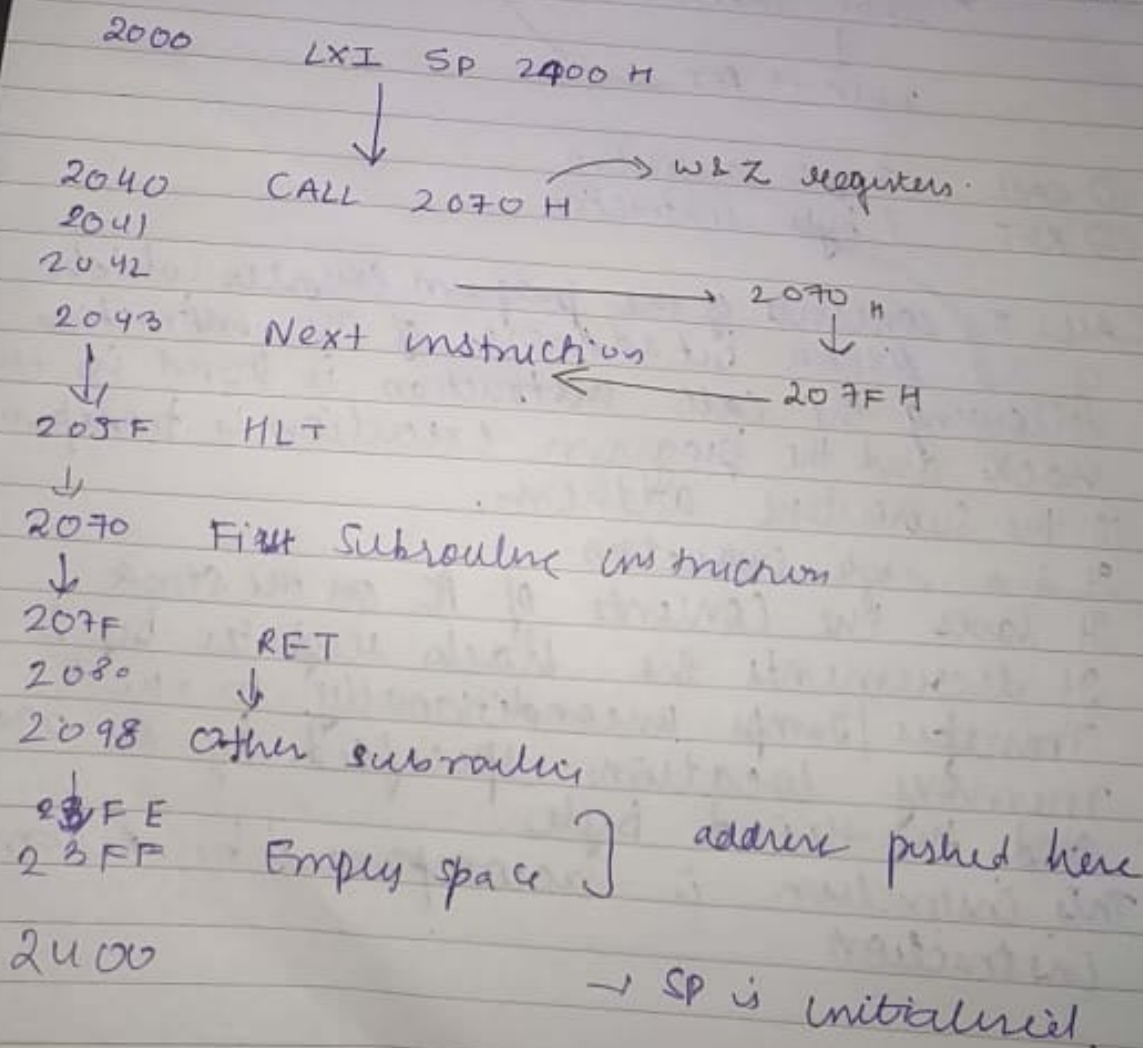 2000 LXI SP 2400 H
2040 CALL 2070 H → W & Z registers.
2041
2042 → 2070 H
2043 Next instruction ← 207F H
205F HLT
2070 First Subroutine instruction
207F RET
2080
2098 Other subroutine
23FE
23FF Empty space } address pushed here
2400 → SP is initialized.